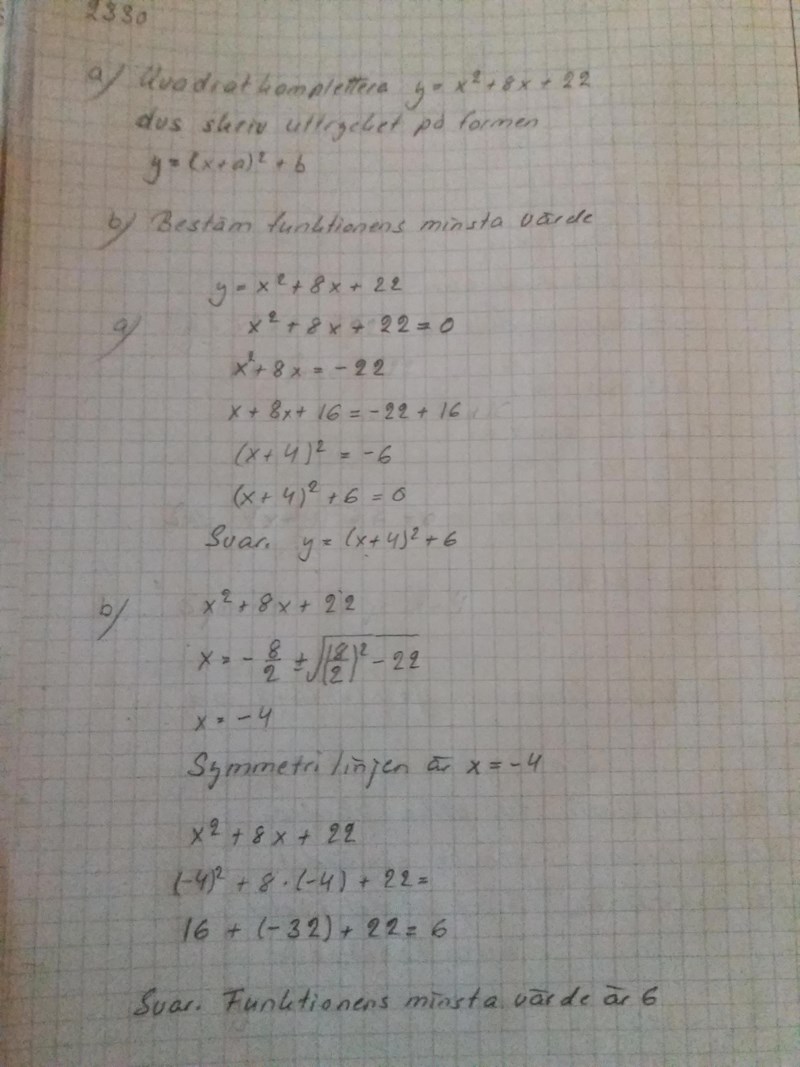 2330
a) Kvadratkomplettera y = x² + 8x + 22
dvs skriv uttrycket på formen
y = (x+a)² + b
b) Bestäm funktionens minsta värde
y = x² + 8x + 22
a) x² + 8x + 22 = 0
x² + 8x = -22
x + 8x + 16 = -22 + 16
(x+4)² = -6
(x+4)² + 6 = 0
Svar. y = (x+4)² + 6
b) x² + 8x + 22
x = -8/2 ± √((8/2)² - 22)
x = -4
Symmetrilinjen är x = -4
x² + 8x + 22
(-4)² + 8·(-4) + 22 =
16 + (-32) + 22 = 6
Svar. Funktionens minsta värde är 6